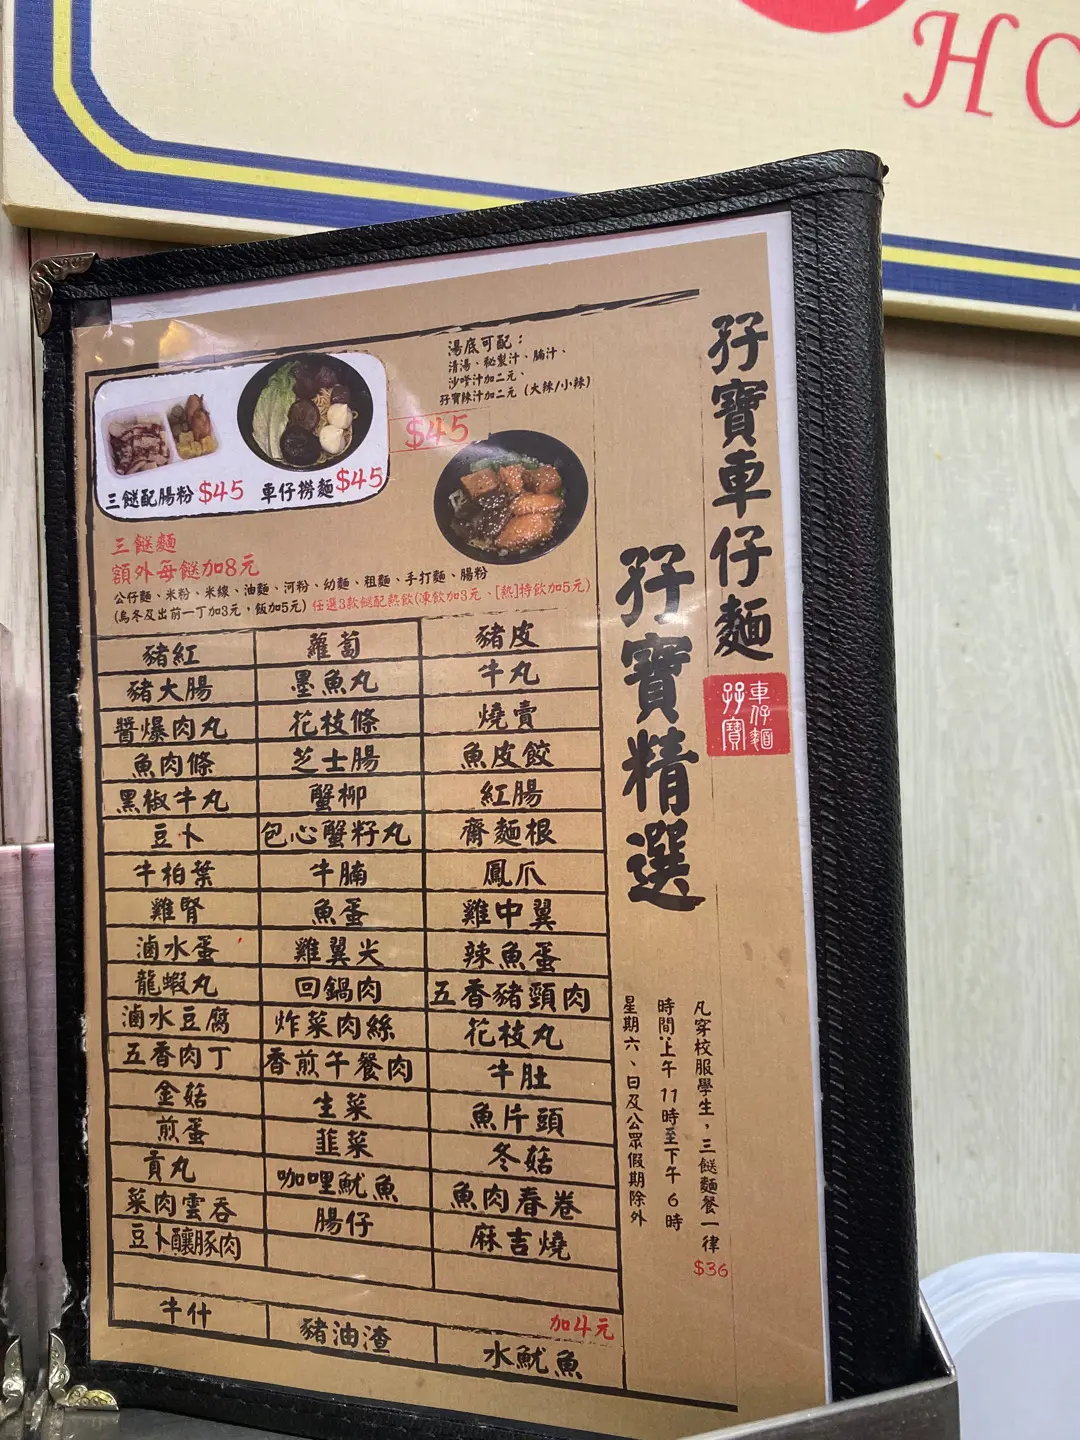 HO
孖寶車仔麵
孖寶精選
車仔麵
孖寶
湯底可配：
清湯、秘製汁、腩汁、
沙嗲汁加二元、
孖寶辣汁加二元（大辣/小辣）
$45
三餸配腸粉 $45
車仔撈麵 $45
三餸麵
額外每餸加8元
公仔麵、米粉、米線、油麵、河粉、幼麵、粗麵、手打麵、腸粉
(烏冬及出前一丁加3元，飯加5元) 任選3款餸配熱飲(凍飲加3元、[熱]特飲加5元)
豬紅 蘿蔔 豬皮
豬大腸 墨魚丸 牛丸
醬爆肉丸 花枝條 燒賣
魚肉條 芝士腸 魚皮餃
黑椒牛丸 蟹柳 紅腸
豆卜 包心蟹籽丸 齋麵根
牛柏葉 牛腩 鳳爪
雞腎 魚蛋 雞中翼
滷水蛋 雞翼尖 辣魚蛋
龍蝦丸 回鍋肉 五香豬頸肉
滷水豆腐 炸菜肉絲 花枝丸
五香肉丁 香煎午餐肉 牛肚
金菇 生菜 魚片頭
煎蛋 韮菜 冬菇
貢丸 咖哩魷魚 魚肉春卷
菜肉雲吞 腸仔 麻吉燒
豆卜釀豚肉
加4元
牛什 豬油渣 水魷魚
凡穿校服學生，三餸麵餐一律$36
時間：上午11時至下午6時
星期六、日及公眾假期除外